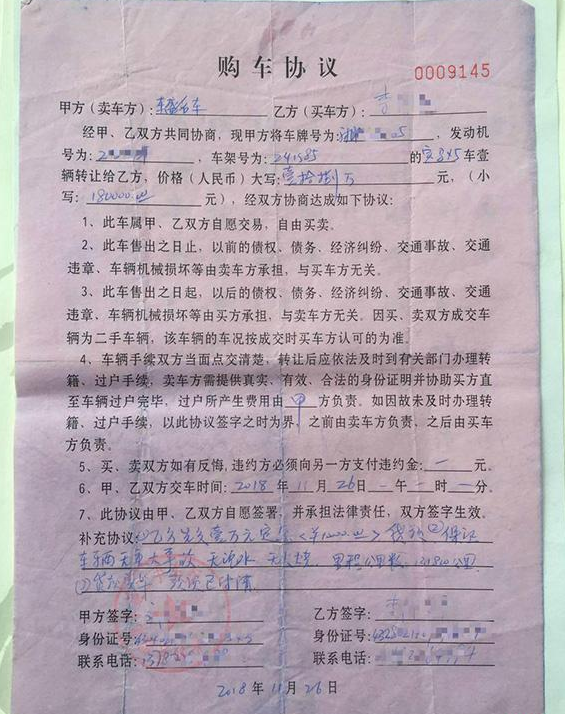 购车协议
0009145
甲方（卖车方）： 名车 乙方（买车方）：李
经甲、乙双方共同协商，现甲方将车牌号为：湘 05，发动机
号为：2 ，车架号为：241585 的宝马X5车壹
辆转让给乙方，价格（人民币）大写：壹拾捌万元，（小
写：180000.00元），经双方协商达成如下协议：
1、此车属甲、乙双方自愿交易，自由买卖。
2、此车售出之日止，以前的债权、债务、经济纠纷、交通事故、交通
违章、车辆机械损坏等由卖车方承担，与买车方无关。
3、此车售出之日起，以后的债权、债务、经济纠纷、交通事故、交通
违章、车辆机械损坏等由买方承担，与卖车方无关。因买、卖双方成交车
辆为二手车辆，该车辆的车况按成交时买车方认可的为准。
4、车辆手续双方当面点交清楚，转让后应依法及时到有关部门办理转
籍、过户手续，卖车方需提供真实、有效、合法的身份证明并协助买方直
至车辆过户完毕，过户所产生费用由甲方负责。如因故未及时办理转
籍、过户手续，以此协议签字之时为界，之前由卖车方负责，之后由买车
方负责。
5、买、卖双方如有反悔，违约方必须向另一方支付违约金：一元。
6、甲、乙双方交车时间：2018年11月26日一午一时一分。
7、此协议由甲、乙双方自愿签署，并承担法律责任，双方签字生效。
补充协议：①乙方先交壹万元定金 ②保证
车辆无重大事故 无泡水 无火烧，里程公里数，131800公里
款项已付清
甲方签字： 乙方签字：李
身份证号： 身份证号：
联系电话： 联系电话：
2018年11月26日